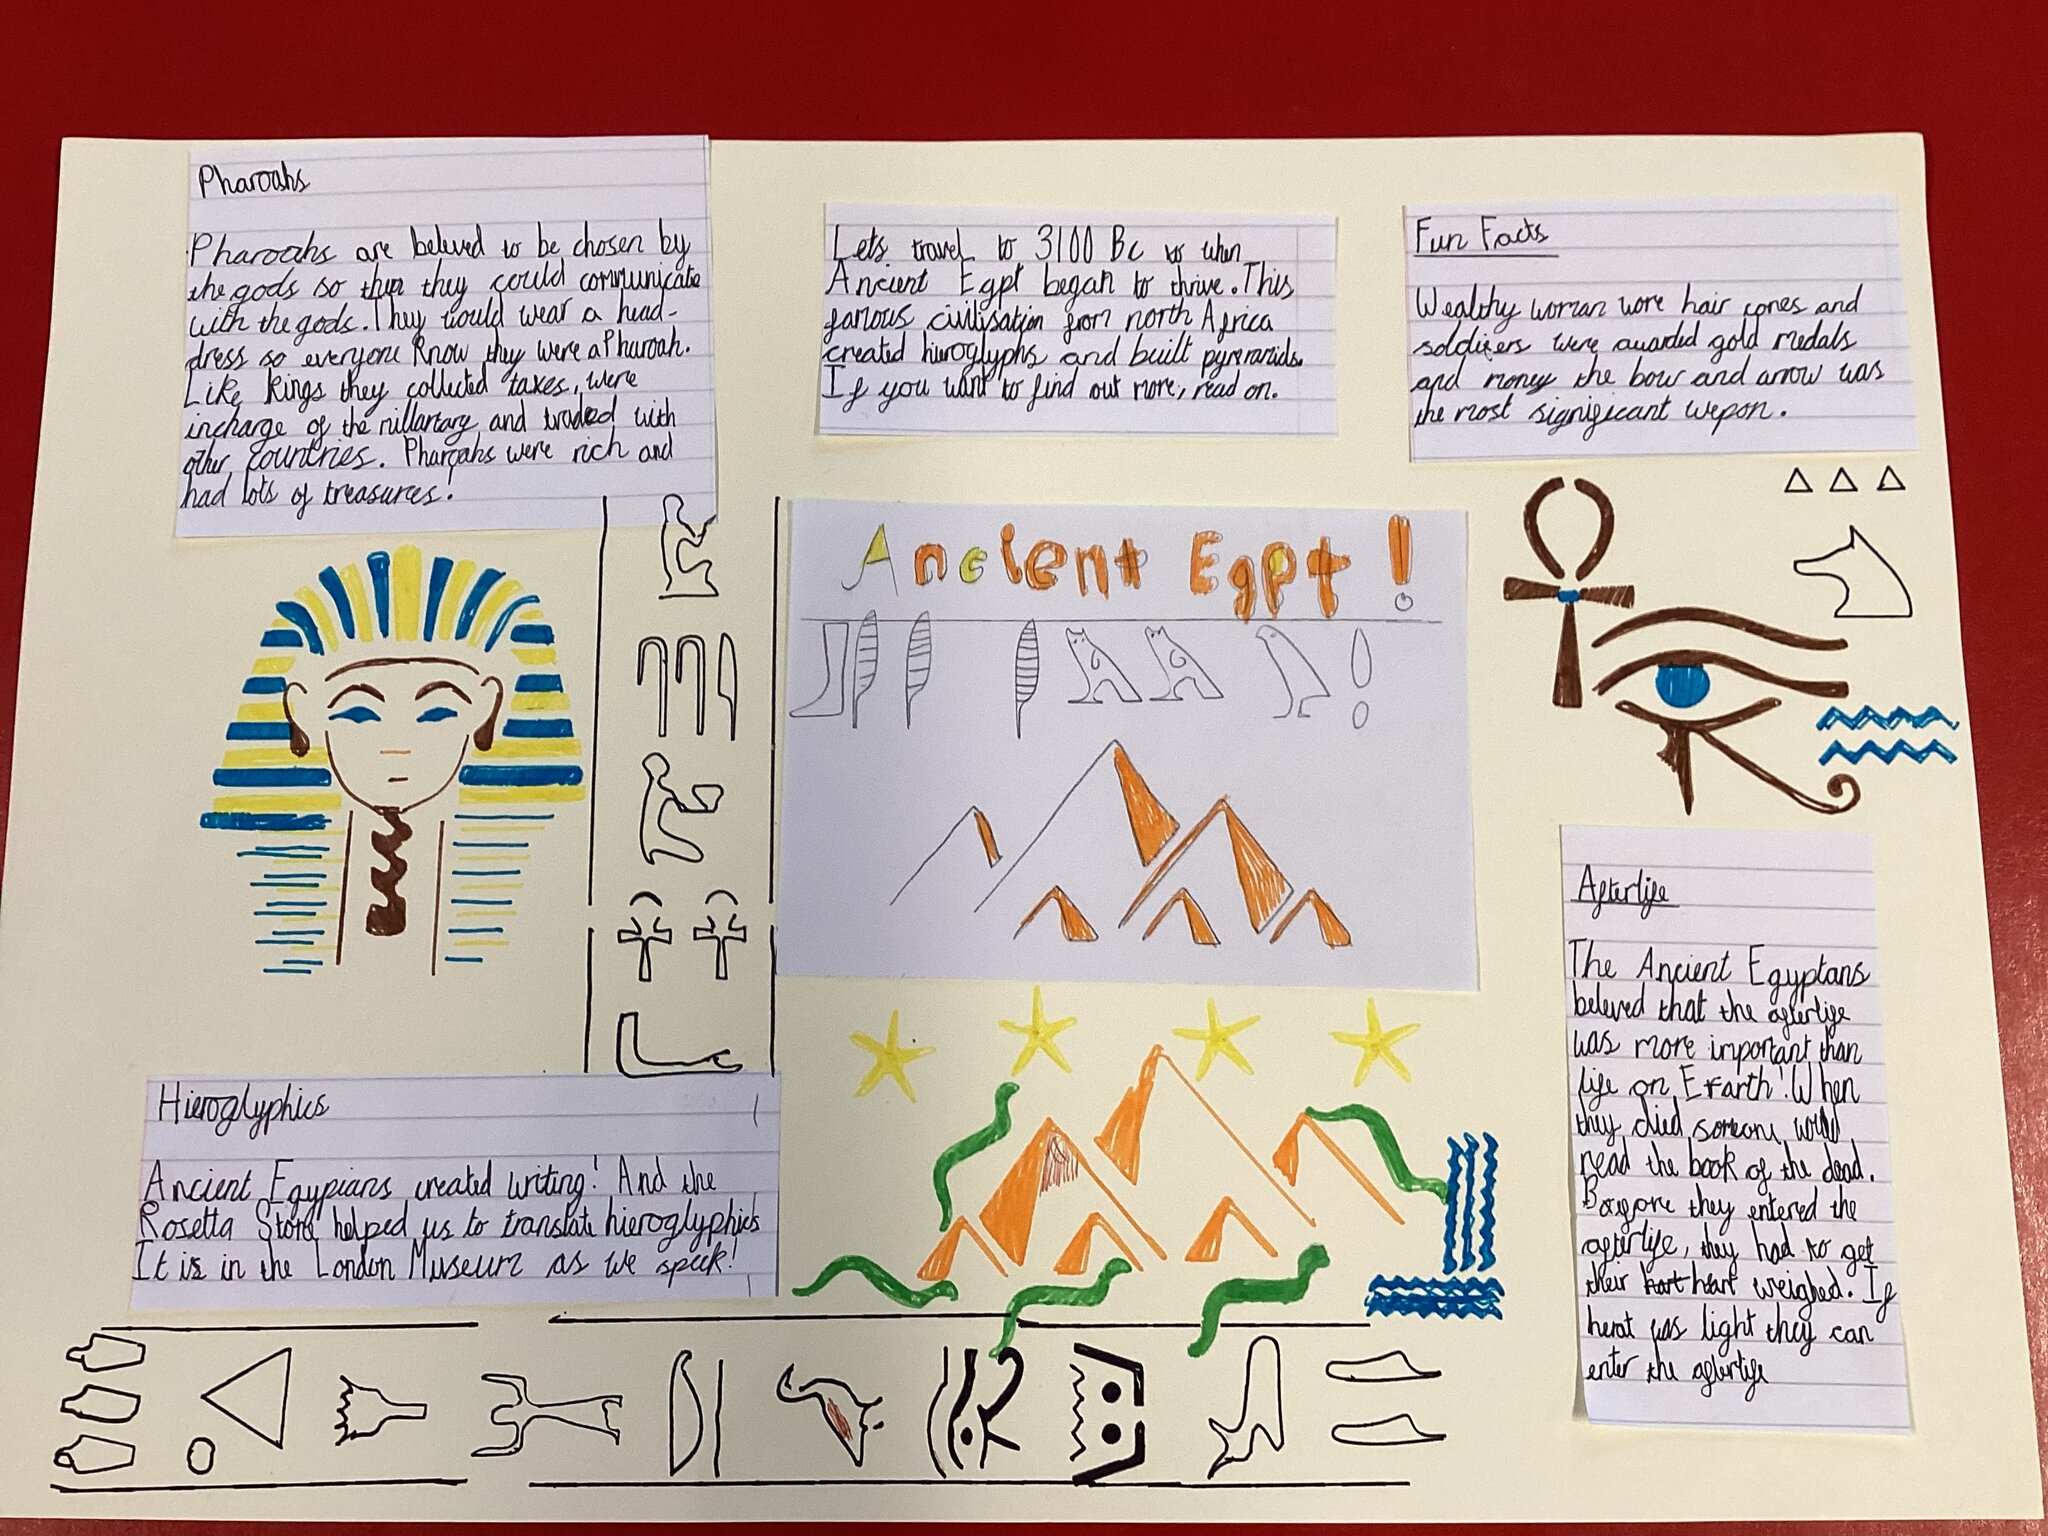 Pharoahs
Pharoahs are beleved to be chosen by
the gods so then they could communicate
with the gods. They would wear a head-
dress so everyone know they were a Pharoah.
Like kings they collected taxes, were
incharge of the millartary and traded with
other countries. Pharoahs were rich and
had lots of treasures!
Lets travel to 3100 Bc to when
Ancient Egpt began to thrive. This
famous civilisation from north Africa
created hieroglyphs and built pyreramids.
If you want to find out more, read on.
Fun Facts
Wealthy woman wore hair cones and
soldiers were awarded gold medals
and money the bow and arrow was
the most significant wepon.
Ancient Egpt!
Hieroglyphics
Ancient Egypians created writing! And the
Rosetta Stone helped us to translate hieroglyphics
It is in the London Museum as we speek!
Afterlife
The Ancient Egyptans
beleved that the afterlife
was more important than
life on Erarth! When
they died someone would
read the book of the dead.
Before they entered the
afterlife, they had to get
their hart hart weighed. If
herat was light they can
enter the afterlife